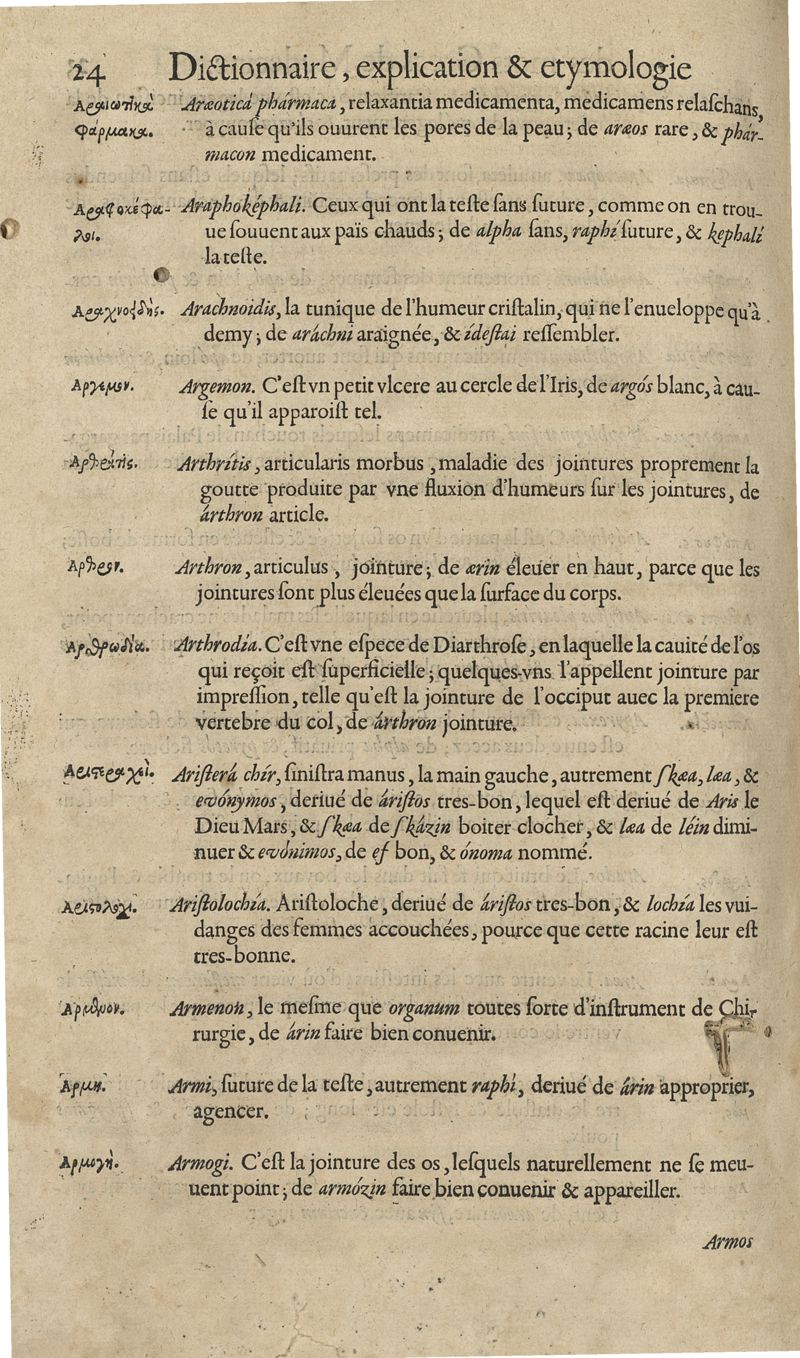 24 Dictionnaire, explication & etymologie
Αραιωτικὰ Aræoticá phármaca, relaxantia medicamenta, medicamens relaſchans,
φάρμακα. à cauſe qu'ils ouurent les pores de la peau; de aræos rare, & phár-
macon medicament.
Αραφοκέφα- Araphoképhali. Ceux qui ont la teſte ſans ſuture, comme on en trou-
λοι. ue ſouuent aux païs chauds; de alpha ſans, raphí ſuture, & kephalí
la teſte.
Αραχνοειδὴς. Arachnoidis, la tunique de l'humeur criſtalin, qui ne l'enueloppe qu'à
demy; de aráchni araignée, & ídeſtai reſſembler.
Αργεμον. Argemon. C'eſt vn petit vlcere au cercle de l'Iris, de argós blanc, à cau-
ſe qu'il apparoiſt tel.
Αρθρίτις. Arthrítis, articularis morbus, maladie des jointures proprement la
goutte produite par vne fluxion d'humeurs ſur les jointures, de
árthron article.
Αρθρον. Arthron, articulus, jointure; de ærin éleuer en haut, parce que les
jointures ſont plus éleuées que la ſurface du corps.
Αρθρωδία. Arthrodía. C'eſt vne eſpece de Diarthroſe, en laquelle la cauité de l'os
qui reçoit eſt ſuperficielle; quelques-vns l'appellent jointure par
impreſſion, telle qu'eſt la jointure de l'occiput auec la premiere
vertebre du col, de árthron jointure.
Ariſterá chír, ſiniſtra manus, la main gauche, autrement ſkæa, læa, &
evónymos, deriué de áriſtos tres-bon, lequel eſt deriué de Aris le
Dieu Mars, & ſkæa de ſkázin boiter clocher, & læa de léin dimi-
nuer & evónimos, de ef bon, & ónoma nommé.
Ariſtolochía. Ariſtoloche, deriué de áriſtos tres-bon, & lochía les vui-
danges des femmes accouchées, pource que cette racine leur eſt
tres-bonne.
Armenon, le meſme que organum toutes ſorte d'inſtrument de Chi-
rurgie, de árin faire bien conuenir.
Αρμὴ. Armi, ſuture de la teſte, autrement raphí, deriué de árin approprier,
agencer.
Αρμογὴ. Armogi. C'eſt la jointure des os, leſquels naturellement ne ſe meu-
uent point; de armózin faire bien conuenir & appareiller.
Armos